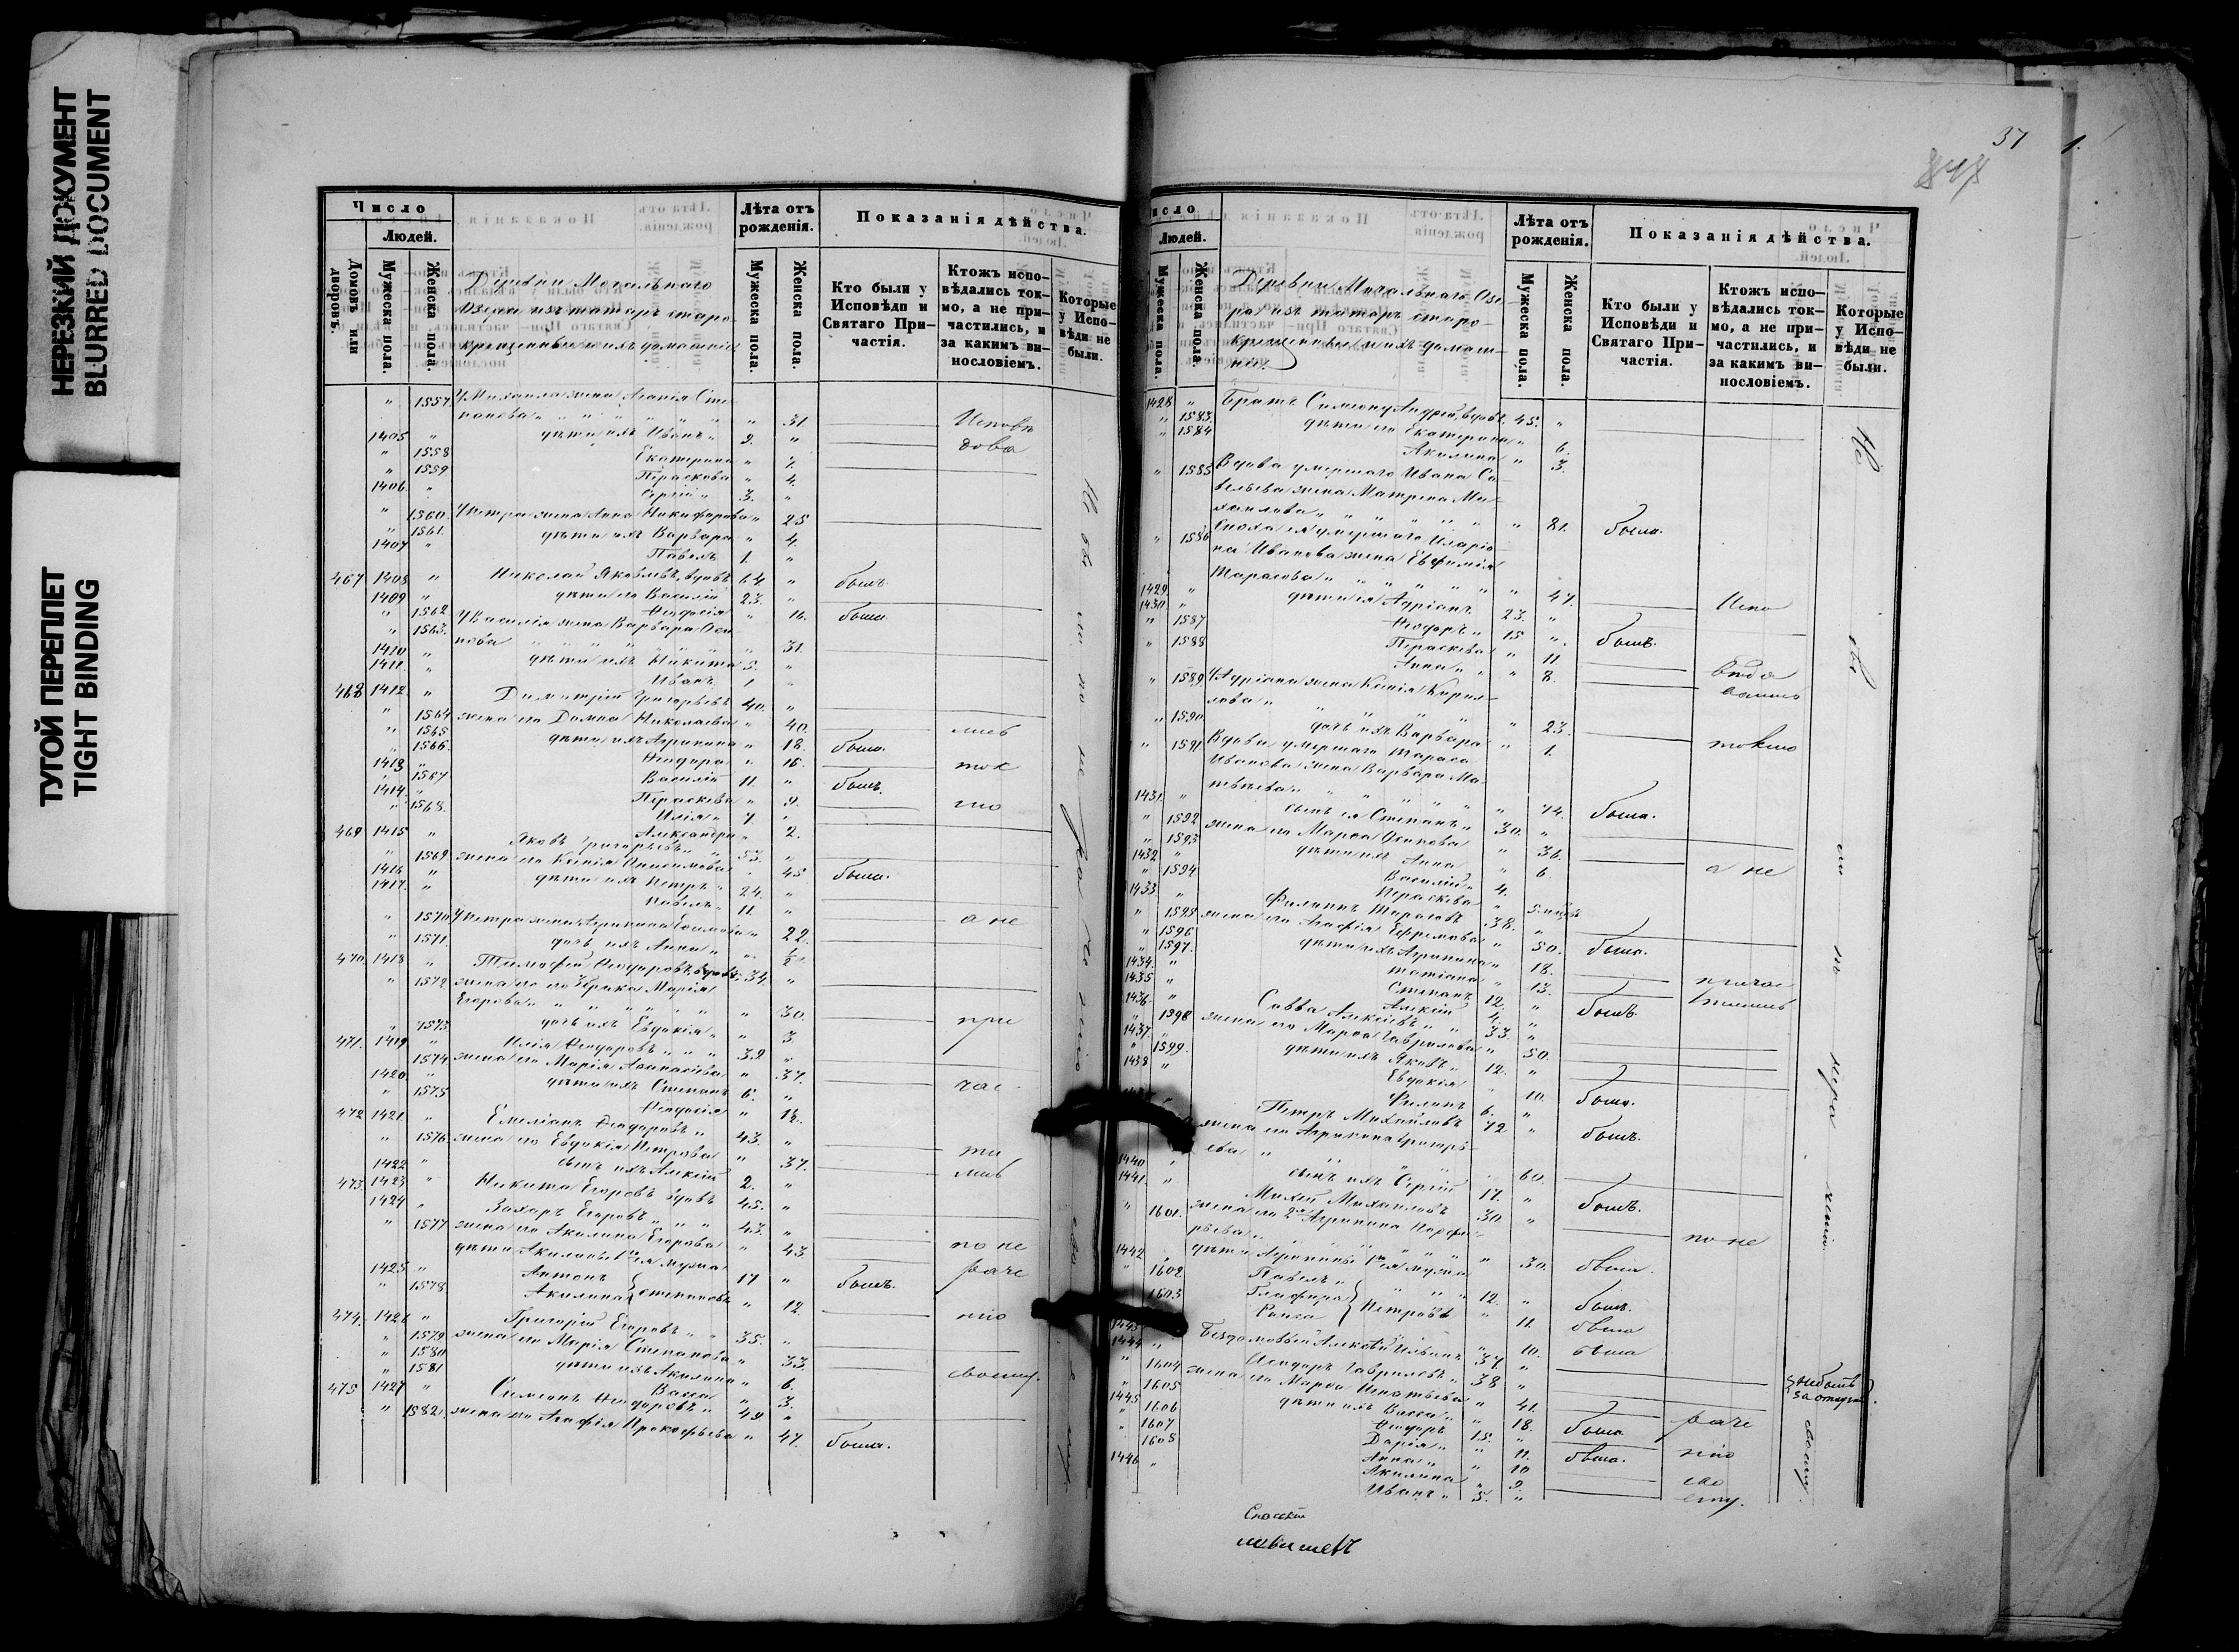 НЕРЕЗКИЙ ДОКУМЕНТ
BLURRED DOCUMENT
ТУГОЙ ПЕРЕПЛЕТ
TIGHT BINDING
Число
Людей.
Домовъ или дворовъ.
Мужеска пола.
Женска пола.
Лѣта отъ рожденія.
Мужеска пола.
Женска пола.
Показанія дѣйства.
Кто были у Исповѣди и Святаго При-
частія.
Ктожъ испо-
вѣдались ток-
мо, а не при-
частились, и
за какимъ ви-
нословіемъ.
Которые
у Испо-
вѣди не
были.
Деревни Мочальнаго
Озера изъ татаръ старо
крещенные и ихъ домашніе
" 1557. У Михаила жена Агапія Сте
панова " 31
1405 " дѣти ихъ Иванъ 9. "
" 1558 Екатерина " 7.
" 1559 Параскева " 4.
1406. " Сергій " 3. "
" 1560. У Петра жена Анна Никифорова " 25
" 1561. дѣти ихъ Варвара " 4.
1407 " Павелъ 1. "
467 1408 " Николай Яковлевъ, вдовъ 64. " былъ.
1409 " дѣти его Василій 23. "
" 1562 Феодосія " 16. была
" 1563. У Василія жена Варвара Оси
пова " 31.
1410 " дѣти ихъ Никита 5. "
1411. " Иванъ 1 "
468 1412. " Димитрій Григорьевъ 40. "
" 1564 жена его Домна Николаева " 40.
" 1565 дѣти ихъ Агрипина " 18. была.
" 1566. Феодора " 16.
1413 " Василій 11. " былъ.
" 1567 Параскева " 9.
1414. " Илія " 7. "
" 1568. Александра " 2.
469 1415 " Яковъ Григорьевъ 53. "
" 1569. жена его Ксенія Анисимова " 45 была.
1416 " дѣти ихъ Петръ 24. "
1417. " Павелъ 11. "
" 1570 У Петра жена Агрипина " 22.
" 1571. дочь ихъ Анна " ½
470. 1418 " Тимофей Феодоровъ 34. "
" 1572 жена его Марія
Егорова " 30.
" 1573 дочь ихъ Евдокія " 3
471. 1419 " Илія Феодоровъ 39 "
" 1574 жена его Марія Афанасіева " 37.
1420. " дѣти ихъ Степанъ 6. "
" 1575 Феодосія " 12.
472 1421. " Емеліанъ Феодоровъ 43. "
" 1576. жена его Евдокія Петрова " 37.
1422 " сынъ ихъ Алексій 2. "
473. 1423 " Никита Егоровъ вдовъ 45. "
1424 " Захаръ Егоровъ 43. "
" 1577 жена его Акилина Егорова " 43.
дѣти Акилины 1го ея мужа
1425 " Антонъ 17 " былъ.
" 1578 Акилина Степановы " 12
474. 1426 " Григорій Егоровъ 35. "
" 1579 жена его Марія Степанова " 33.
" 1580 дѣти ихъ Акилина " 6.
" 1581 Васса " 3.
475 1427 " Симеонъ Феодоровъ 49 "
" 1582. жена его Агафія Прокофьева " 47. была.
Исповѣ
дова
лись
ток
мо
а не
при
час
ти
лись
по не
раче
нію
своему.
37
Число
Людей.
Мужеска пола.
Женска пола.
Лѣта отъ рожденія.
Мужеска пола.
Женска пола.
Показанія дѣйства.
Кто были у Исповѣди и Святаго При-
частія.
Ктожъ испо-
вѣдались ток-
мо, а не при-
частились, и
за какимъ ви-
нословіемъ.
Которые
у Испо-
вѣди не
были.
Деревни Мочальнаго Озе-
ра изъ татаръ старо-
крещенные и ихъ домаш-
ніе.
1428 " Братъ Симеону Андрей, вдовъ 45. "
" 1583. дѣти его Екатерина " 6.
" 1584 Акилина " 3.
" 1585 Вдова умершаго Ивана Са
вельева жена Матрена Ми-
хаилова " 81. была.
" 1586 Сноха ея умершаго Иларіо
на Иванова жена Евфимія
Тарасова " 47.
1429. " дѣти ея Адріанъ 23. "
1430 " Феодоръ 15 " былъ.
" 1587 Параскева " 11
" 1588 Анна " 8.
" 1589 У Адріана жена Ксенія Кирил-
лова " 23.
" 1590 дочь ихъ Варвара " 1.
" 1591. Вдова умершаго Тараса
Иванова жена Варвара Ма-
твѣева " 74. была.
1431. " сынъ ея Степанъ 30. "
" 1592 жена его Марфа Осипова " 36.
" 1593 дѣти ихъ Анна " 6.
1432 " Василій 4. "
" 1594 Параскева
1433. " Филиппъ Тарасовъ 38. "
" 1595 жена его Агафія Ефремова " 50. была.
" 1596 дѣти ихъ Агрипина " 18.
" 1597. Татіана " 13.
1434. " Степанъ 12. " былъ
1435 " Алексій 4. "
1436 " Савва Алексіевъ 33. "
" 1598 жена его Марфа Гаврилова " 50.
1437 " дѣти ихъ Яковъ 12. "
" 1599. Евдокія " 10. была.
1438 " Филипъ 6. "
Петръ Михайловъ 72 " былъ.
жена его Агрипина Григорь-
ева " 60.
1440 " сынъ ихъ Сергій 17. " былъ.
1441. " Михей Михайловъ 30 "
" 1601. жена его 2я Агрипина Порфи-
рьева " 30. была.
дѣти Агрипины 1го ея мужа
1442 " Павелъ 12. " былъ.
" 1602 Глафира Петровы " 11. была
1603 Раиса " 10. была
1443 " Бездомовый Алексѣй 37. "
1444 " Феодоръ Гавриловъ 38 "
" 1604 жена его Марфа Игнатьева " 41.
" 1605 дѣти ихъ Васса " 18. была
1445 " Феодоръ 15. "
" 1606 Дарія " 11. была.
" 1607 Анна " 10
" 1608 Акилина " 9.
1446 " Иванъ 5. "
Испо
вѣдо
вались
токмо
а не
причас
тились
по не
раче
нію
сво
ему.
Не
по
своему.